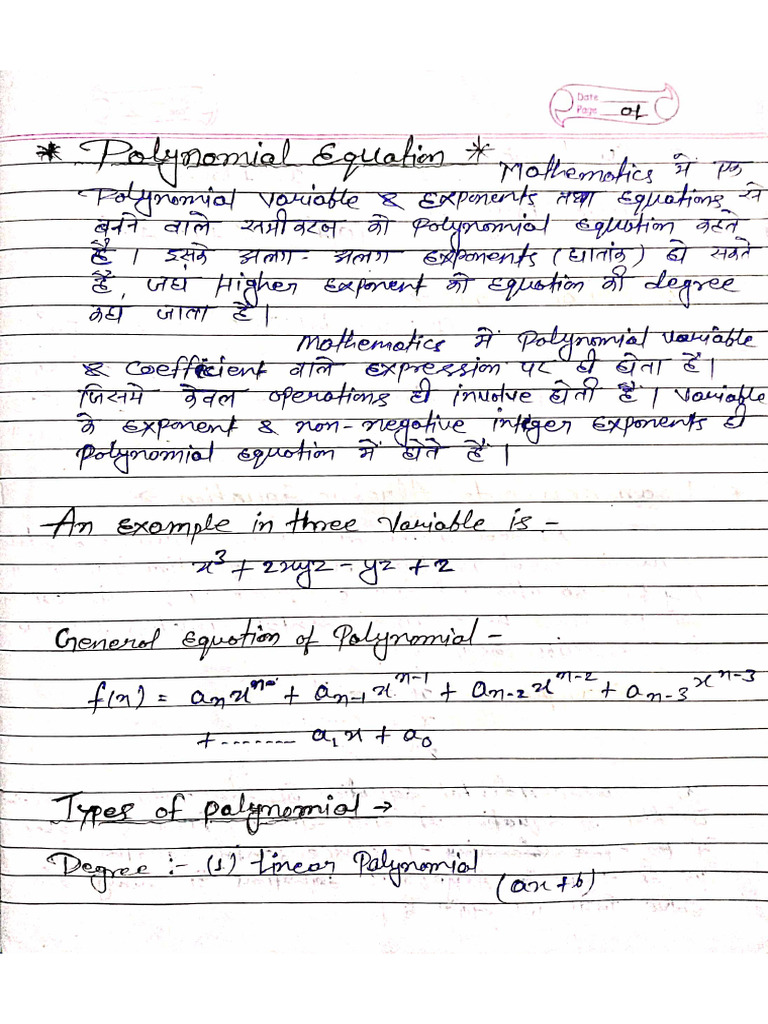 Date
Page 01
* Polynomial Equation *
Mathematics में एक
Polynomial variable & Exponents तथा Equations से
बनने वाले समीकरण को Polynomial Equation कहते
हैं। इसके अलग-अलग Exponents (घातांक) हो सकते
हैं, जहां Higher Exponent को Equation की degree
कहा जाता है।
Mathematics में Polynomial variable
& Coefficient वाले Expression पर ही होता है।
जिसमे केवल operations ही involve होती हैं। Variable
के Exponent & non-negative integer Exponents ही
Polynomial Equation में होते हैं।
An Example in three Variable is :-
x³ + 2xyz - yz + 2
General Equation of Polynomial -
f(x) = aₙxⁿ + aₙ₋₁xⁿ⁻¹ + aₙ₋₂xⁿ⁻² + aₙ₋₃xⁿ⁻³
+ -------- a₁x + a₀
Types of Polynomial →
Degree :- (1) Linear Polynomial
(ax + b)